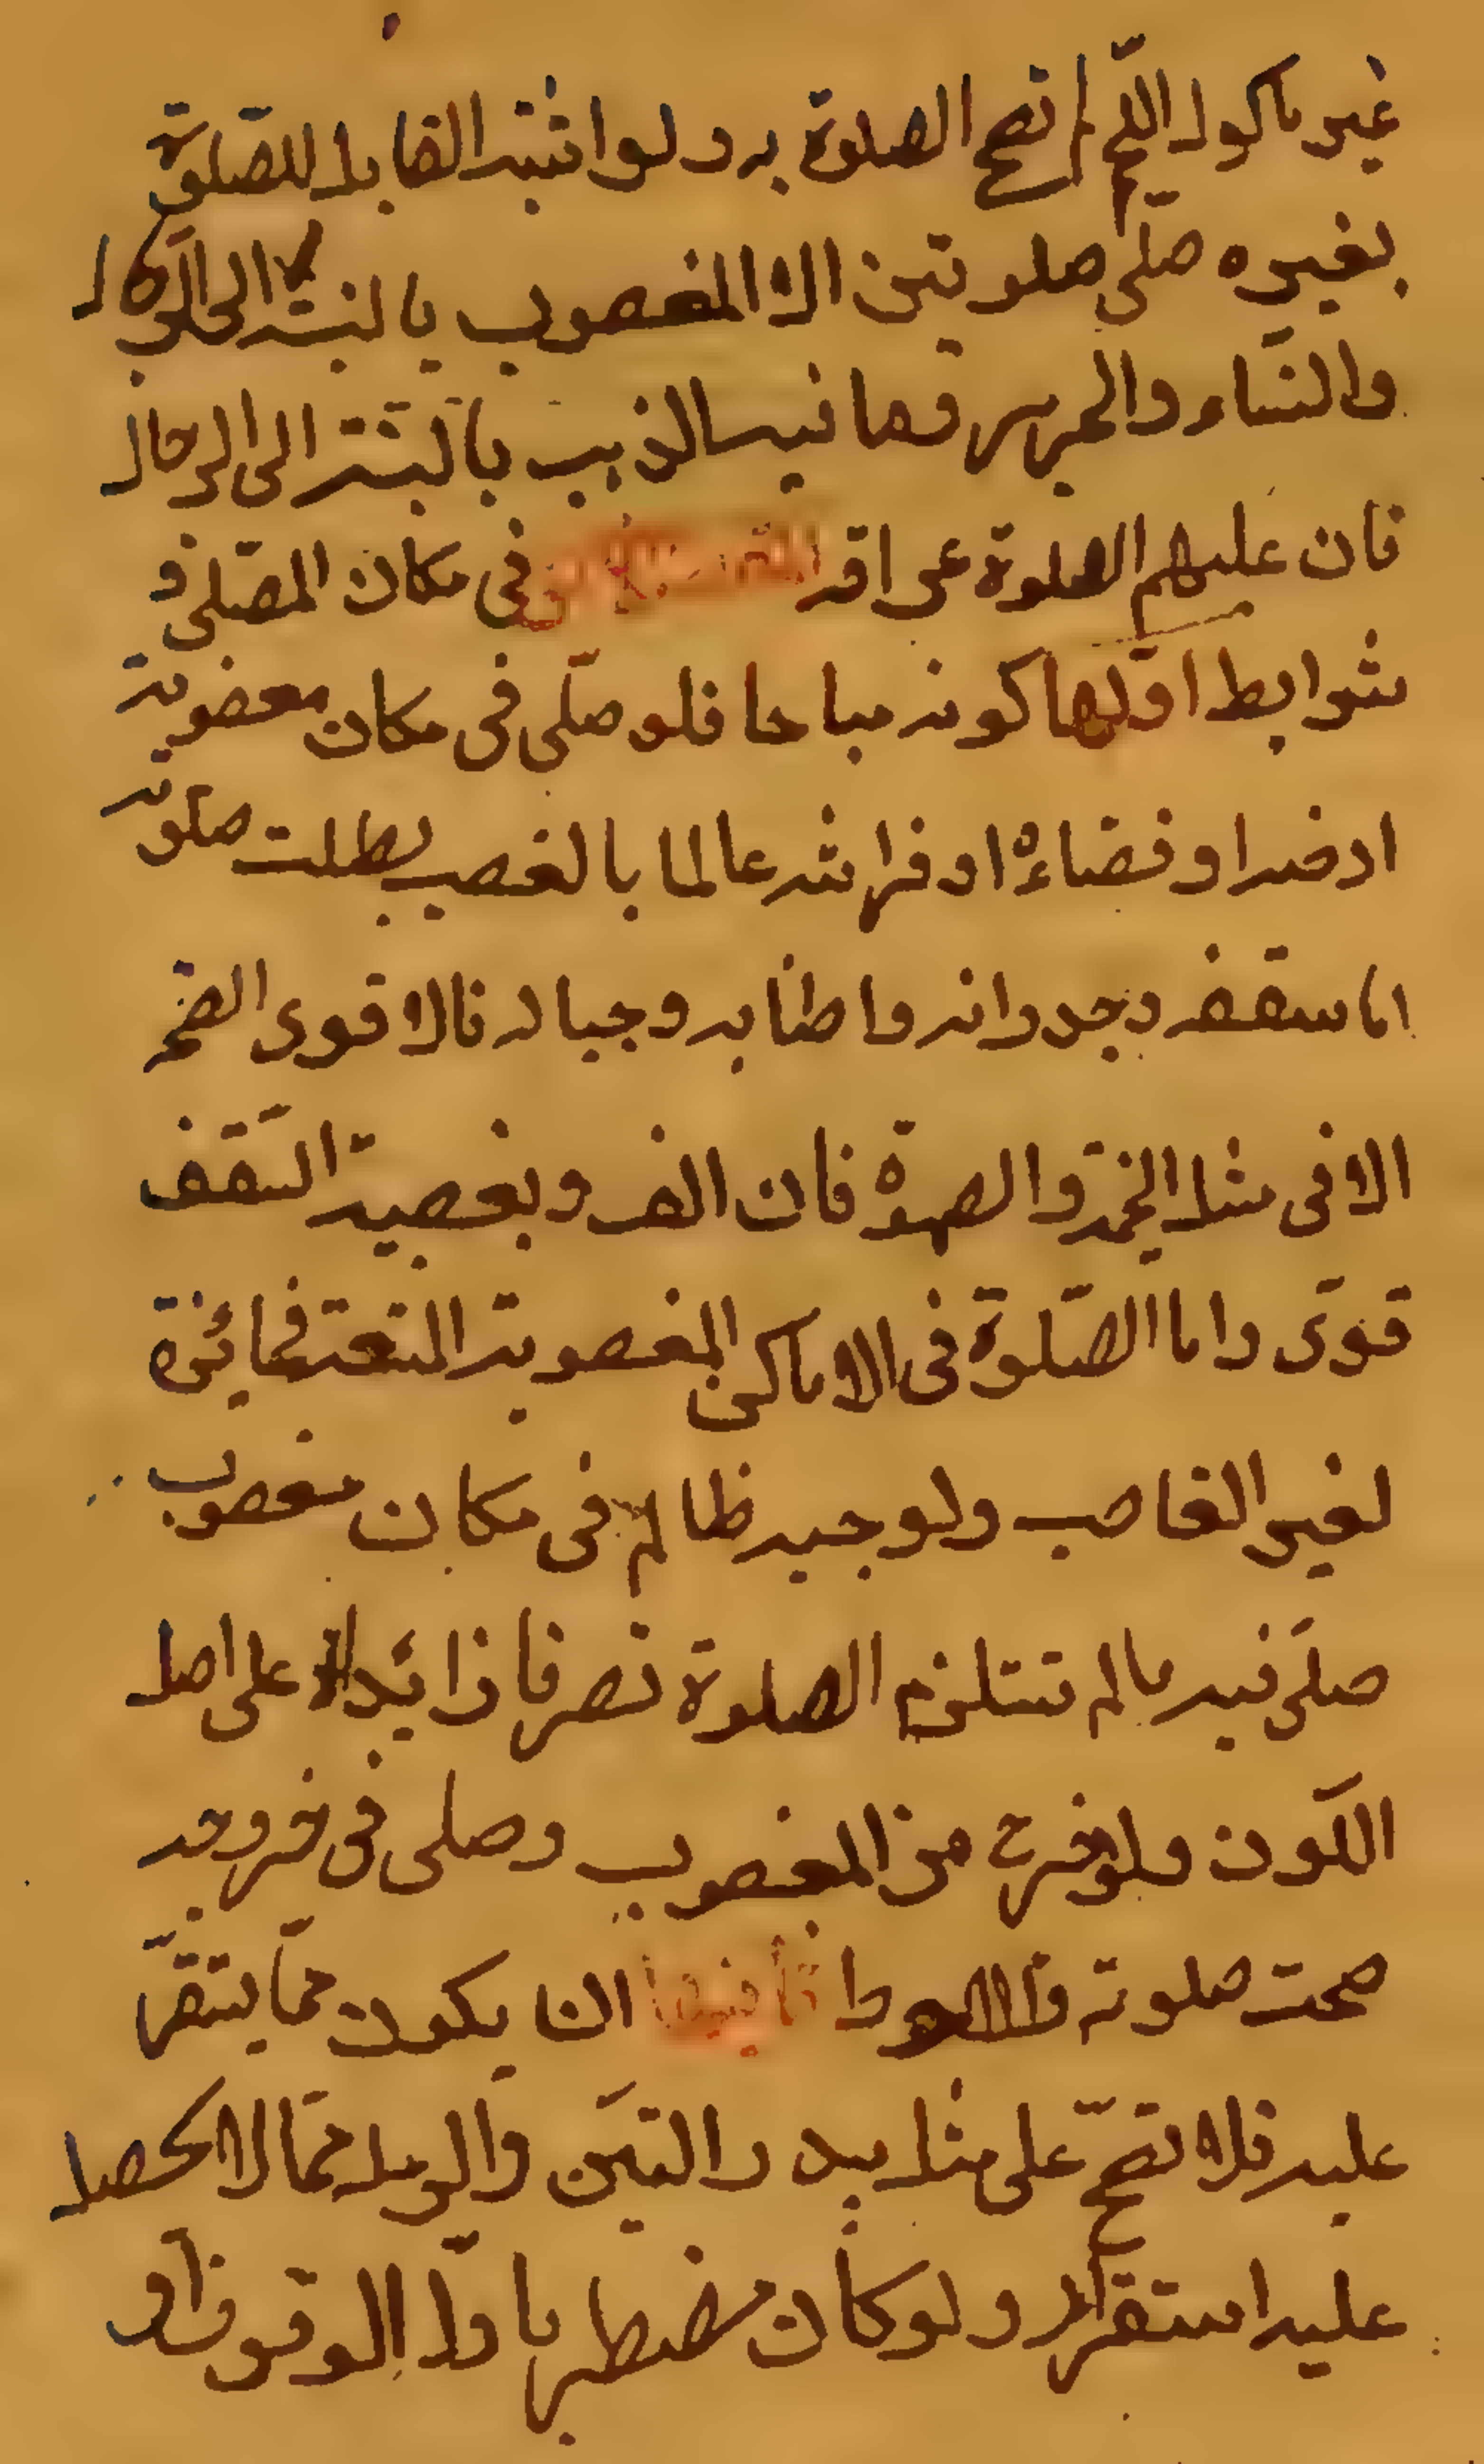 غير ماكول اللحم لم تصح الصلوة به ولو اشتبه القابل للصلوة
بغيره صلى صلوتين الا المغصوب بالنسبة الى الكل
والنساء والحرير وما فيه الذهب بالنسبة الى الرجال
فان عليهم الصلوة عراة في مكان المصلى و
شرايط اولها كونه مباحا فلو صلى في مكان مغصوبة
ارضه او فضاءه او فراشه عالما بالغصب بطلت صلوته
اما سقفه وجدرانه واطنابه وحباله فالاقوى الصحة
الا في مثل الخيمة والصهوة فان الف وبغصبية السقف
قوى واما الصلوة في الاماكن المغصوبة المتسعة فجائزة
لغير الغاصب ولو حبسه ظالم في مكان مغصوب
صلى فيه ما لم تستلزم الصلوة تصرفا زائدا على اصل
الكون ولو خرج من المغصوب وصلى في خروجه
صحت صلوته والاحوط ثانيها ان يكون مما يستقر
عليه فلا تصح على مثل بيدر التبن والرمل مما لا يحصل
عليه استقرار ولو كان مضطربا اول الوقوف او